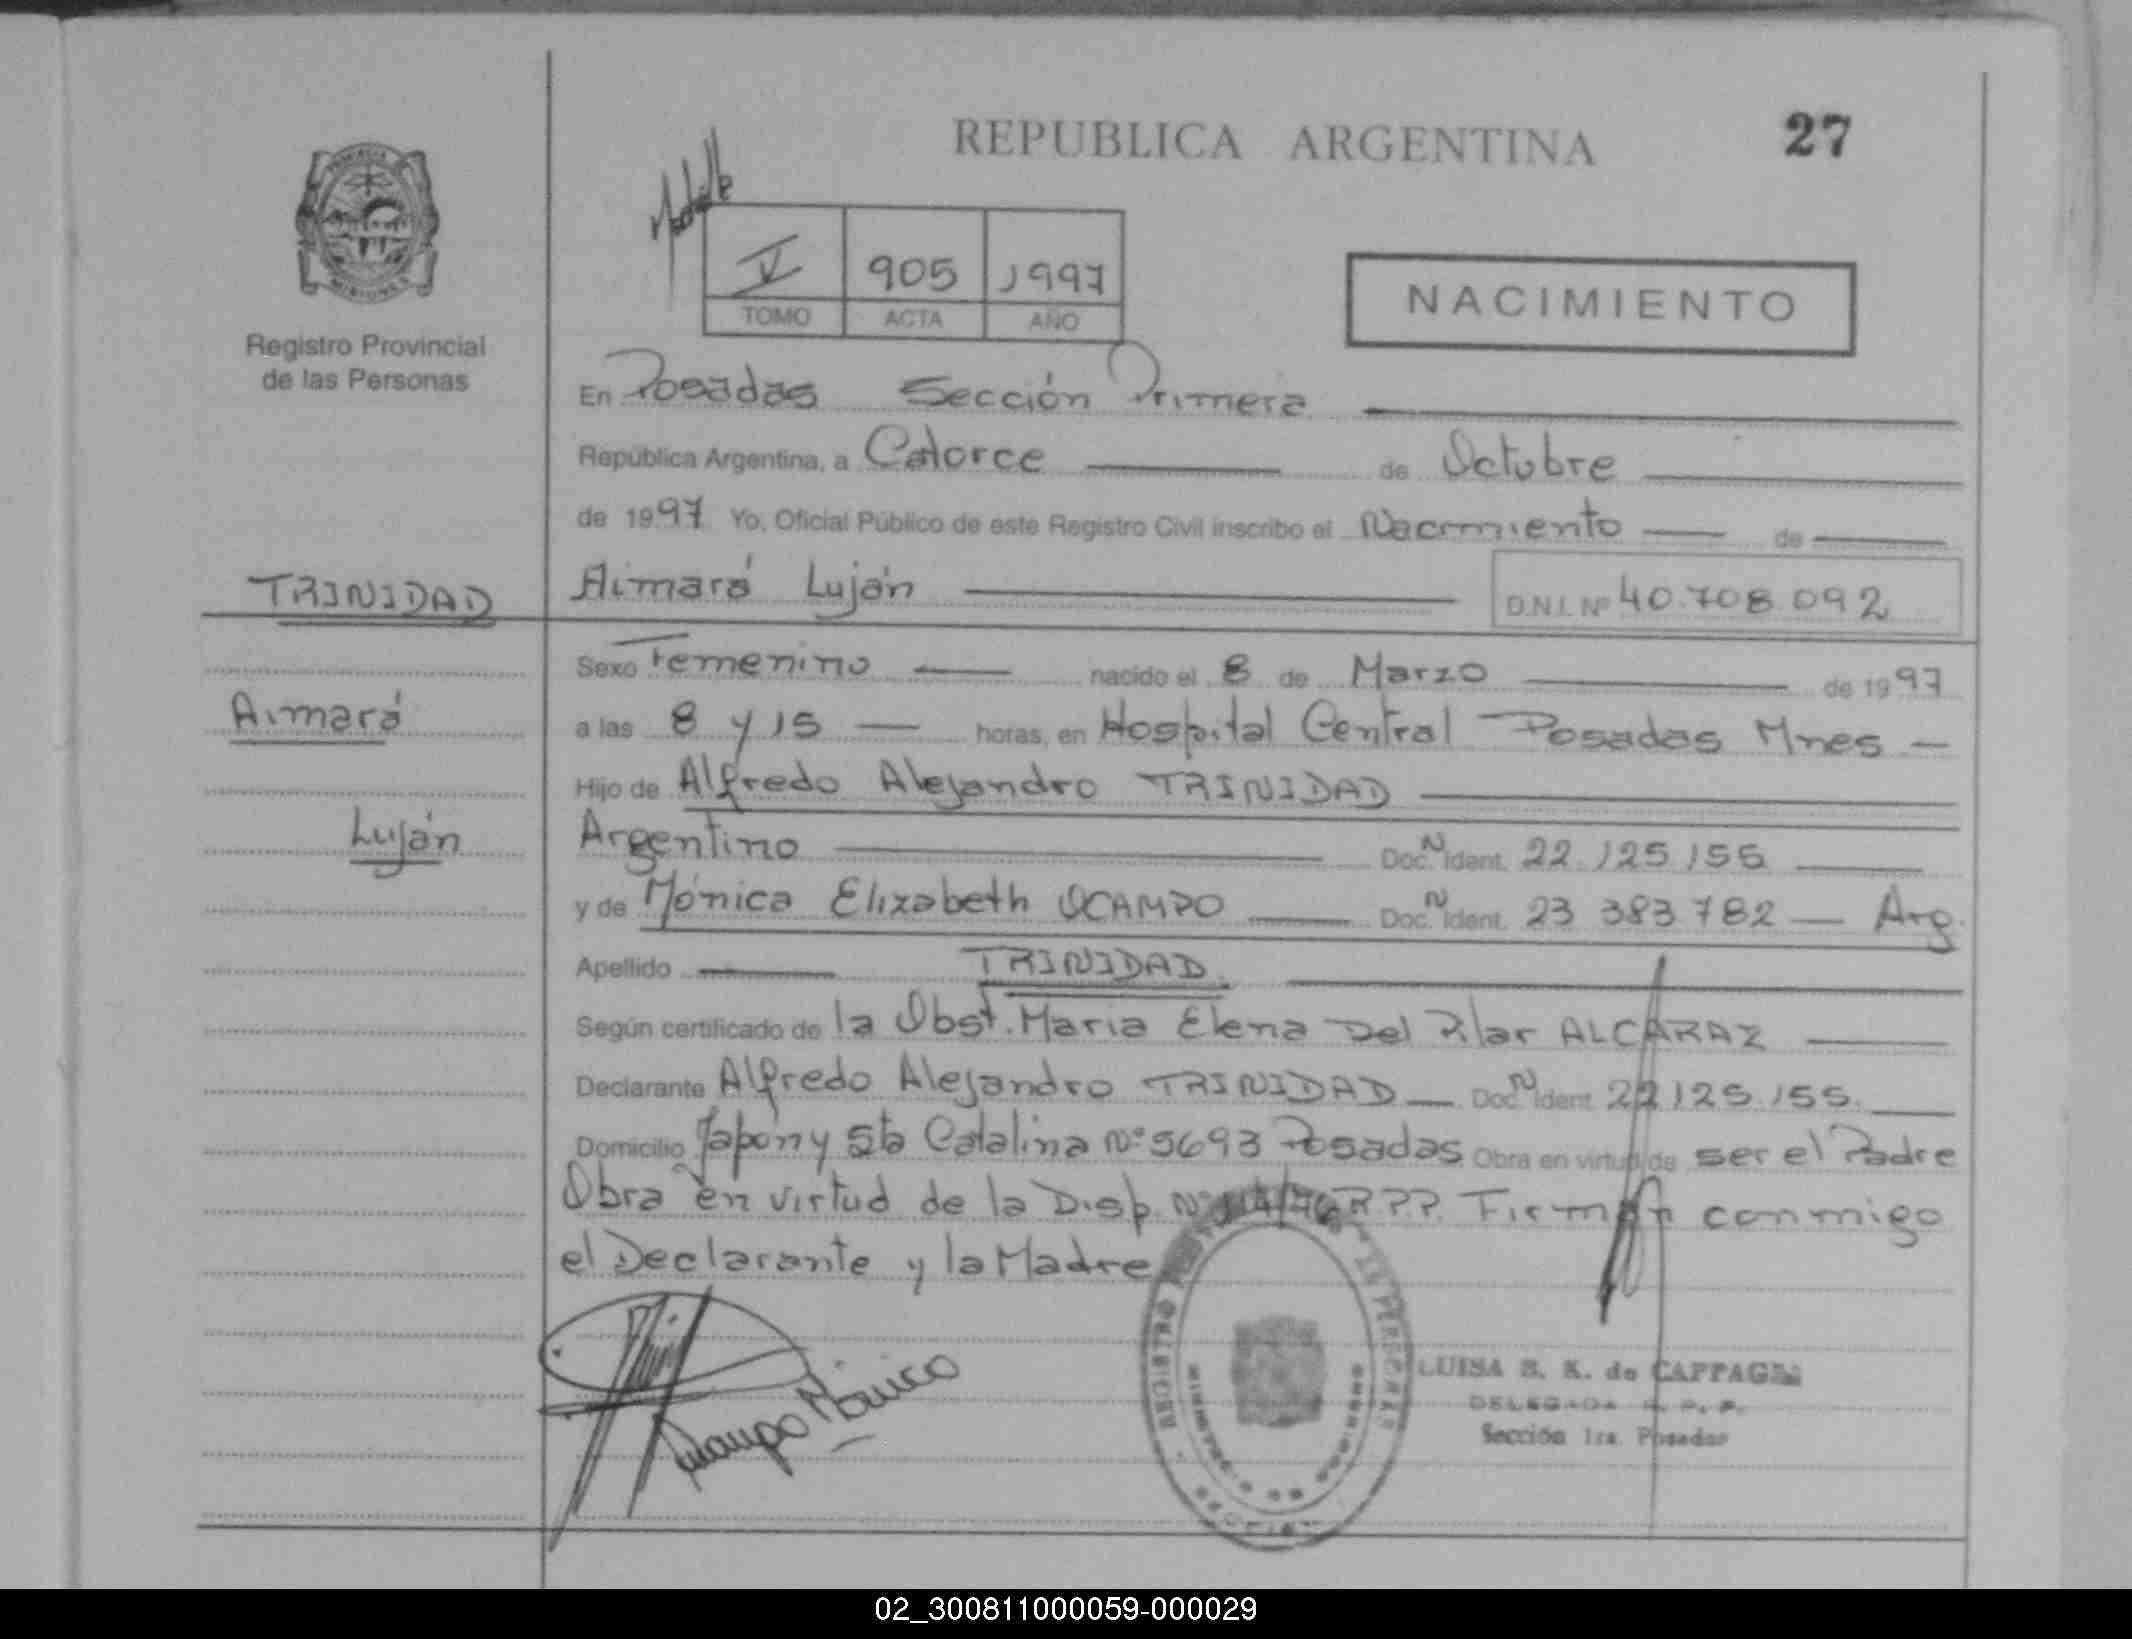 REPUBLICA ARGENTINA
27
V 905 1997
TOMO ACTA AÑO
NACIMIENTO
Registro Provincial
de las Personas
En Posadas Sección Primera
República Argentina, a Catorce de Octubre
de 1997 Yo, Oficial Público de este Registro Civil inscribo el Nacimiento de
TRINIDAD
Aimará Luján D.N.I. Nº 40.708.092
Sexo Femenino nacido el 8 de Marzo de 1997
Aimará
a las 8 y 15 horas, en Hospital Central Posadas Mnes
Hijo de Alfredo Alejandro TRINIDAD
Luján
Argentino Doc. N Ident. 22.125.155
y de Mónica Elizabeth OCAMPO Doc. N Ident. 23 383.782 Arg.
Apellido TRINIDAD
Según certificado de la Obst. Maria Elena Del Pilar ALCARAZ
Declarante Alfredo Alejandro TRINIDAD Doc. N Ident. 22.125.155.
Domicilio Japón y Sta Catalina Nº 5693 Posadas Obra en virtud de ser el Padre
Obra en virtud de la Disp. Nº RPP. Firman conmigo
el Declarante y la Madre
Ocampo Mónica
LUISA de
DELEGADA R. P. P.
Sección 1ra. Posadas
02_300811000059-000029